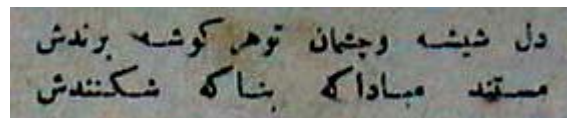 دل شیشه وچشمان توهر کوشه برندش
مستند مباداکه بناکه شکنندش